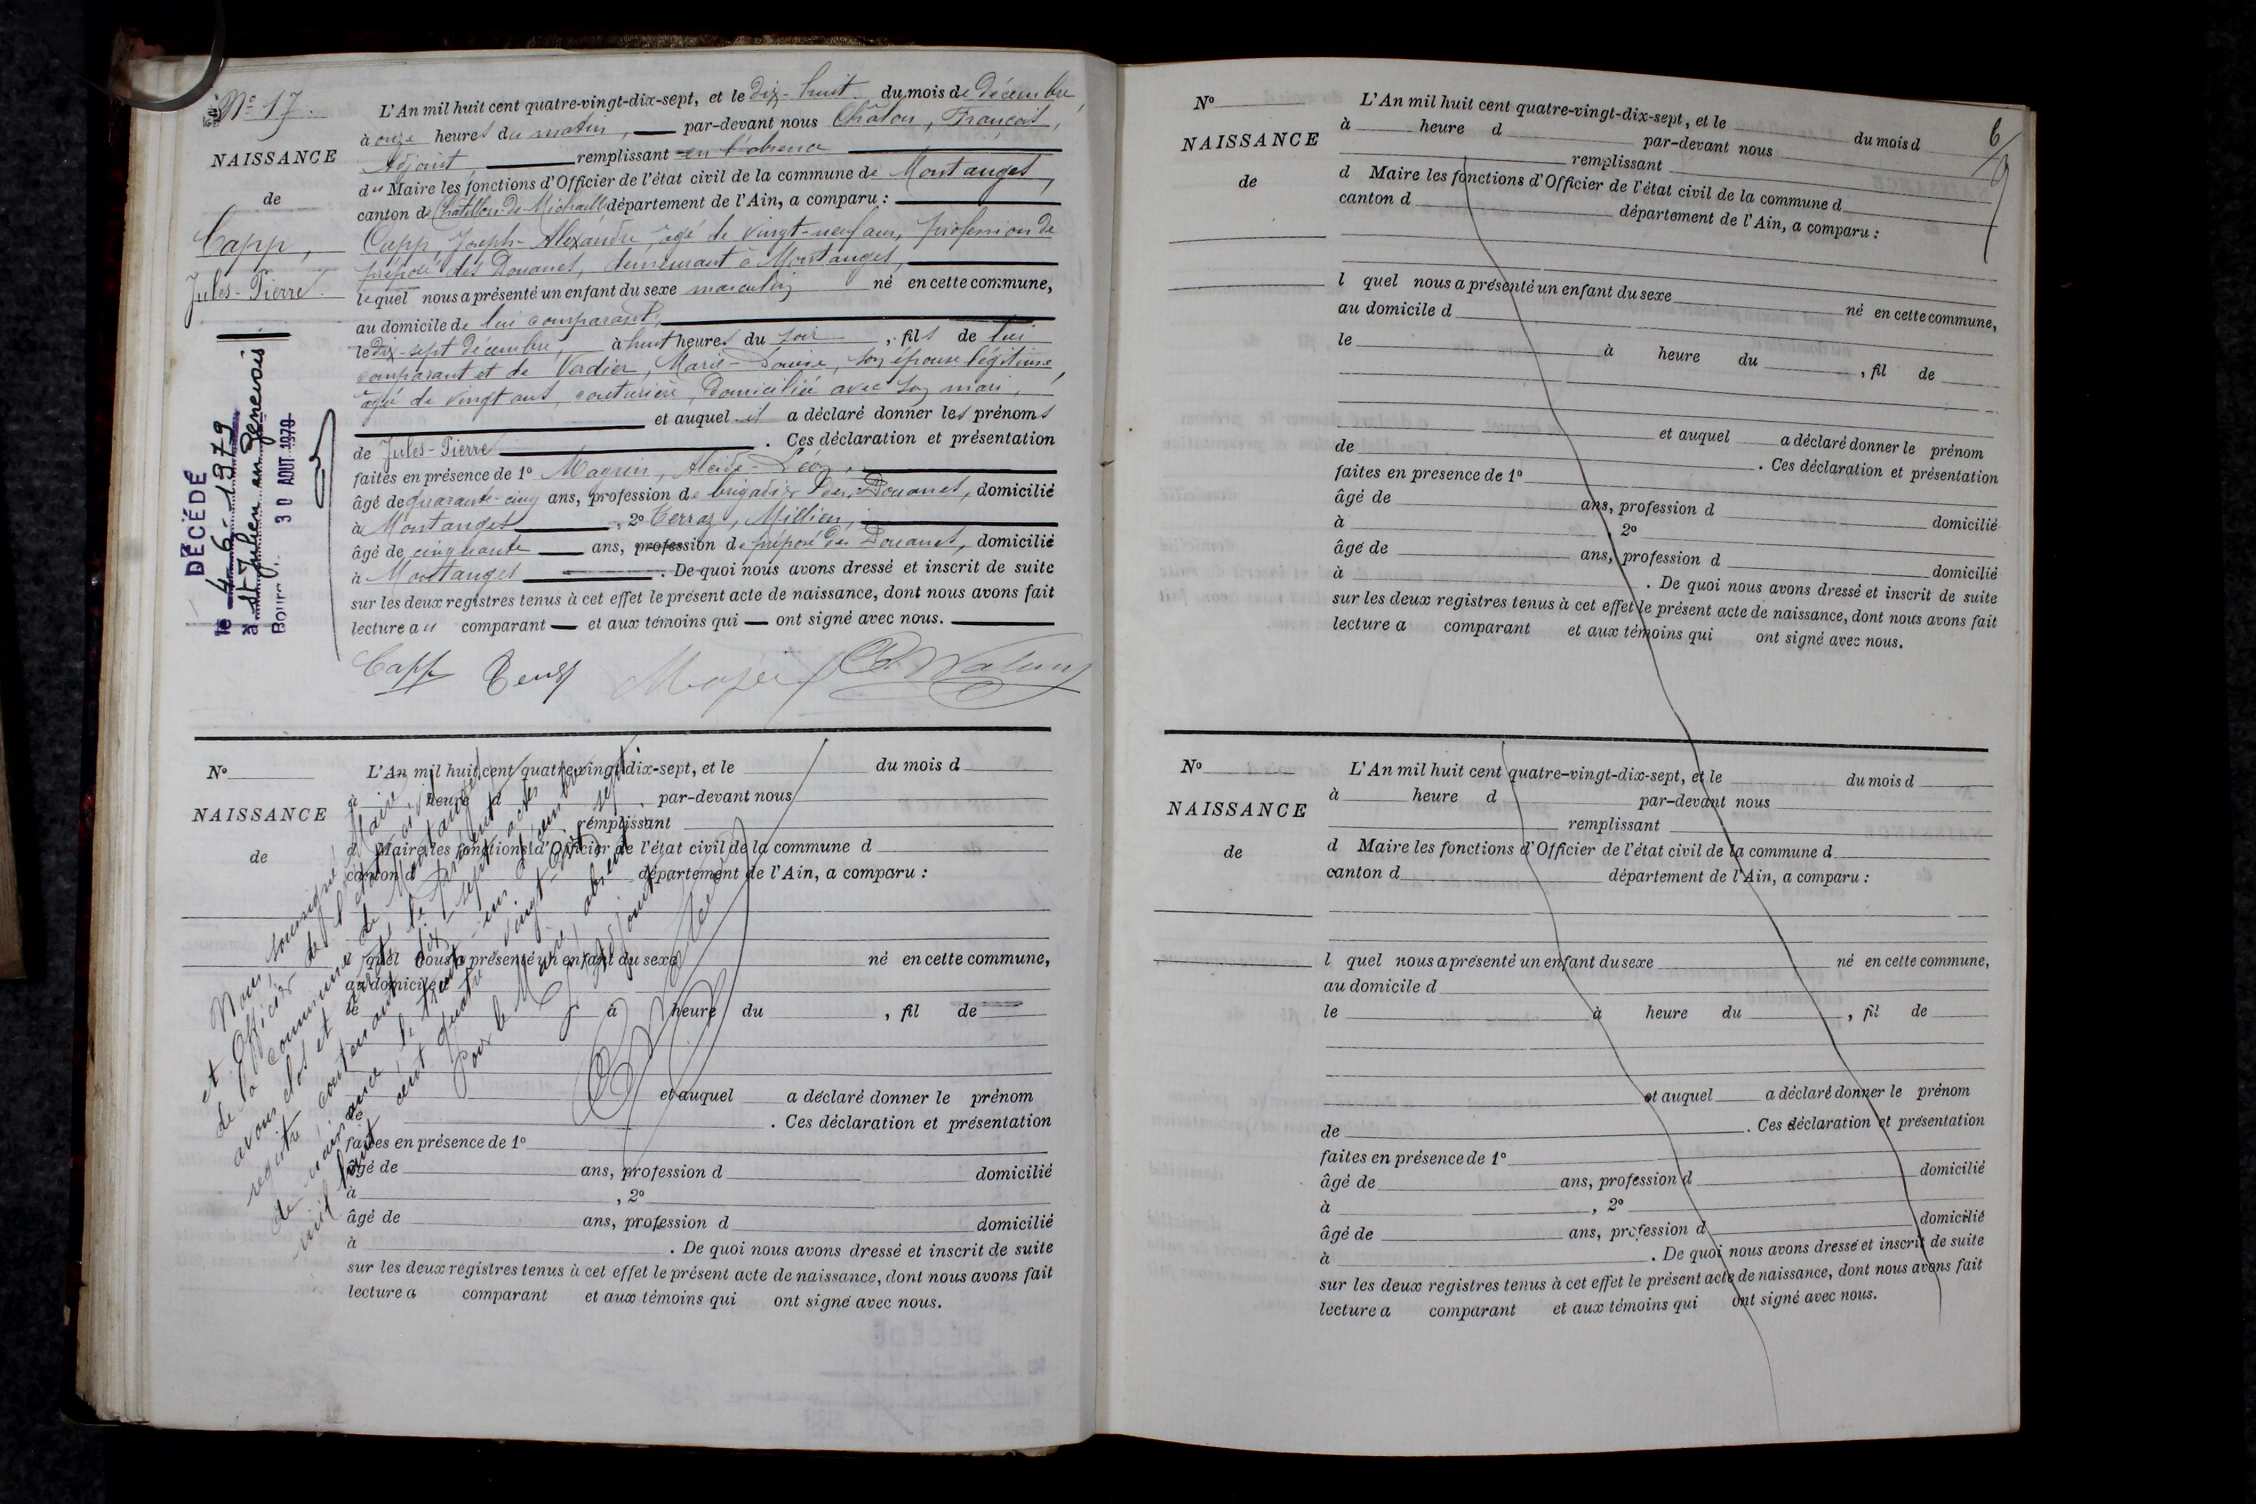 Nº 17.
NAISSANCE
de
Capp,
Jules-Pierre.
DÉCÉDÉ
le 4-6-1979
à St Julien en Genevois
30 AOUT 1979
L'An mil huit cent quatre-vingt-dix-sept, et le dix-huit du mois de décembre,
à onze heures du matin, par-devant nous Châton, François,
Adjoint remplissant en l'absence
du Maire les fonctions d'Officier de l'état civil de la commune de Montanges,
canton de Châtillon de Michaille département de l'Ain, a comparu :
Capp, Joseph-Alexandre, âgé de vingt-neuf ans, profession de
préposé des Douanes, demeurant à Montanges,
lequel nous a présenté un enfant du sexe masculin né en cette commune,
au domicile de lui comparant,
le dix-sept décembre, à huit heures du soir, fils de lui
comparant et de Verdier, Marie-Louise, son épouse légitime,
âgée de vingt ans, couturière, domiciliée avec son mari,
et auquel il a déclaré donner les prénoms
de Jules-Pierre. Ces déclaration et présentation
faites en présence de 1º Magnin, Alcide-Léon,
âgé de quarante-cinq ans, profession de brigadier des Douanes, domicilié
à Montanges, 2º Terraz, Millien,
âgé de cinquante ans, profession de préposé des Douanes, domicilié
à Montanges. De quoi nous avons dressé et inscrit de suite
sur les deux registres tenus à cet effet le présent acte de naissance, dont nous avons fait
lecture au comparant et aux témoins qui ont signé avec nous.
Capp
Nº
NAISSANCE
de
L'An mil huit cent quatre-vingt-dix-sept, et le du mois d
à heure d par-devant nous
remplissant
d Maire les fonctions d'Officier de l'état civil de la commune d
canton d département de l'Ain, a comparu :
quel nous a présenté un enfant du sexe né en cette commune,
au domicile d
le à heure du , fil de
et auquel a déclaré donner le prénom
de . Ces déclaration et présentation
faites en présence de 1º
âgé de ans, profession d domicilié
à , 2º
âgé de ans, profession d domicilié
à . De quoi nous avons dressé et inscrit de suite
sur les deux registres tenus à cet effet le présent acte de naissance, dont nous avons fait
lecture a comparant et aux témoins qui ont signé avec nous.
Nous, soussigné, Maire
et Officier de l'état civil
de la commune de Montanges
avons clos et arrêté le présent
registre contenant dix-sept actes
de naissance le trente-un décembre
mil huit cent quatre-vingt-dix-sept
Pour le Maire absent
L'adjoint
6
Nº
NAISSANCE
de
L'An mil huit cent quatre-vingt-dix-sept, et le du mois d
à heure d par-devant nous
remplissant
d Maire les fonctions d'Officier de l'état civil de la commune d
canton d département de l'Ain, a comparu :
l quel nous a présenté un enfant du sexe né en cette commune,
au domicile d
le à heure du , fil de
et auquel a déclaré donner le prénom
de . Ces déclaration et présentation
faites en presence de 1º
âgé de ans, profession d domicilié
à , 2º
âgé de ans, profession d domicilié
à . De quoi nous avons dressé et inscrit de suite
sur les deux registres tenus à cet effet le présent acte de naissance, dont nous avons fait
lecture a comparant et aux témoins qui ont signé avec nous.
Nº
NAISSANCE
de
L'An mil huit cent quatre-vingt-dix-sept, et le du mois d
à heure d par-devant nous
remplissant
d Maire les fonctions d'Officier de l'état civil de la commune d
canton d département de l'Ain, a comparu :
l quel nous a présenté un enfant du sexe né en cette commune,
au domicile d
le à heure du , fil de
et auquel a déclaré donner le prénom
de . Ces déclaration et présentation
faites en présence de 1º
âgé de ans, profession d domicilié
à , 2º
âgé de ans, profession d domicilié
à . De quoi nous avons dressé et inscrit de suite
sur les deux registres tenus à cet effet le présent acte de naissance, dont nous avons fait
lecture a comparant et aux témoins qui ont signé avec nous.